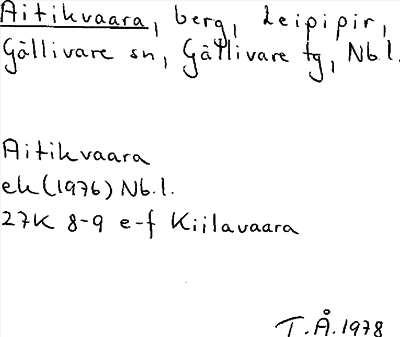 Aitikvaara, berg, Leipipir,
Gällivare sn, Gällivare tg, Nb.l.
Aitikvaara
ek (1976) Nb.l.
27K 8-9 e-f Kiilavaara
T.Å. 1978